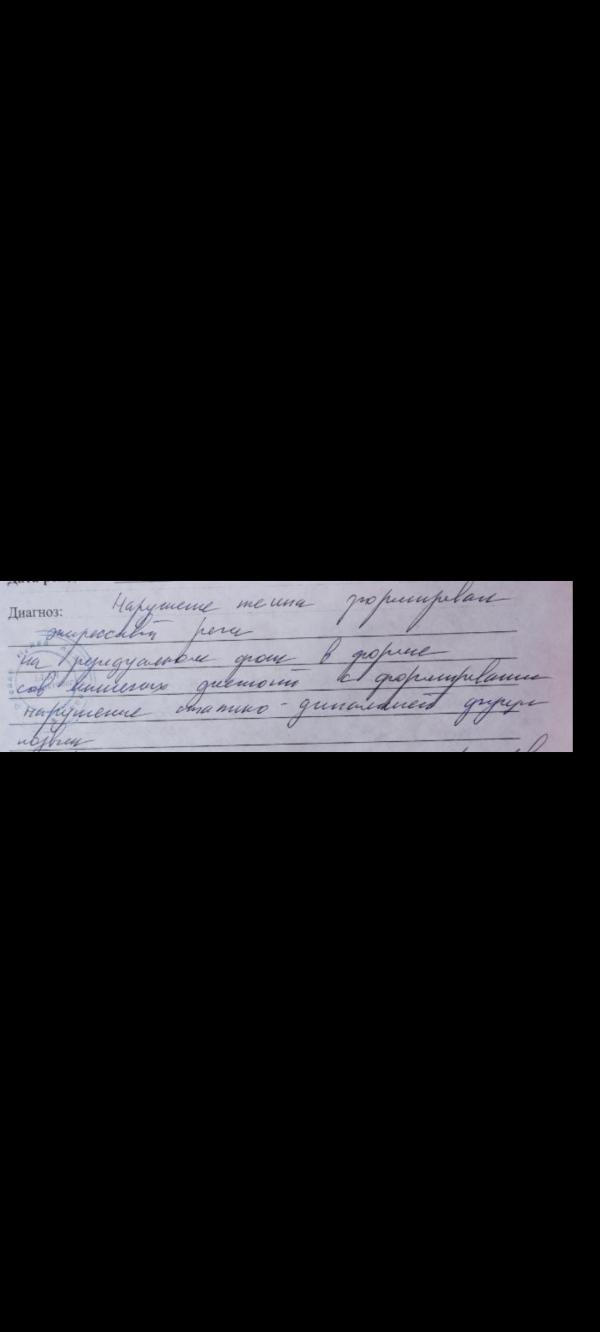 Диагноз: Нарушение темпа формирован
экспрессивной речи
на резидуальном фоне в форме
миш дистонии с формировании
нарушение статико-динамической функции